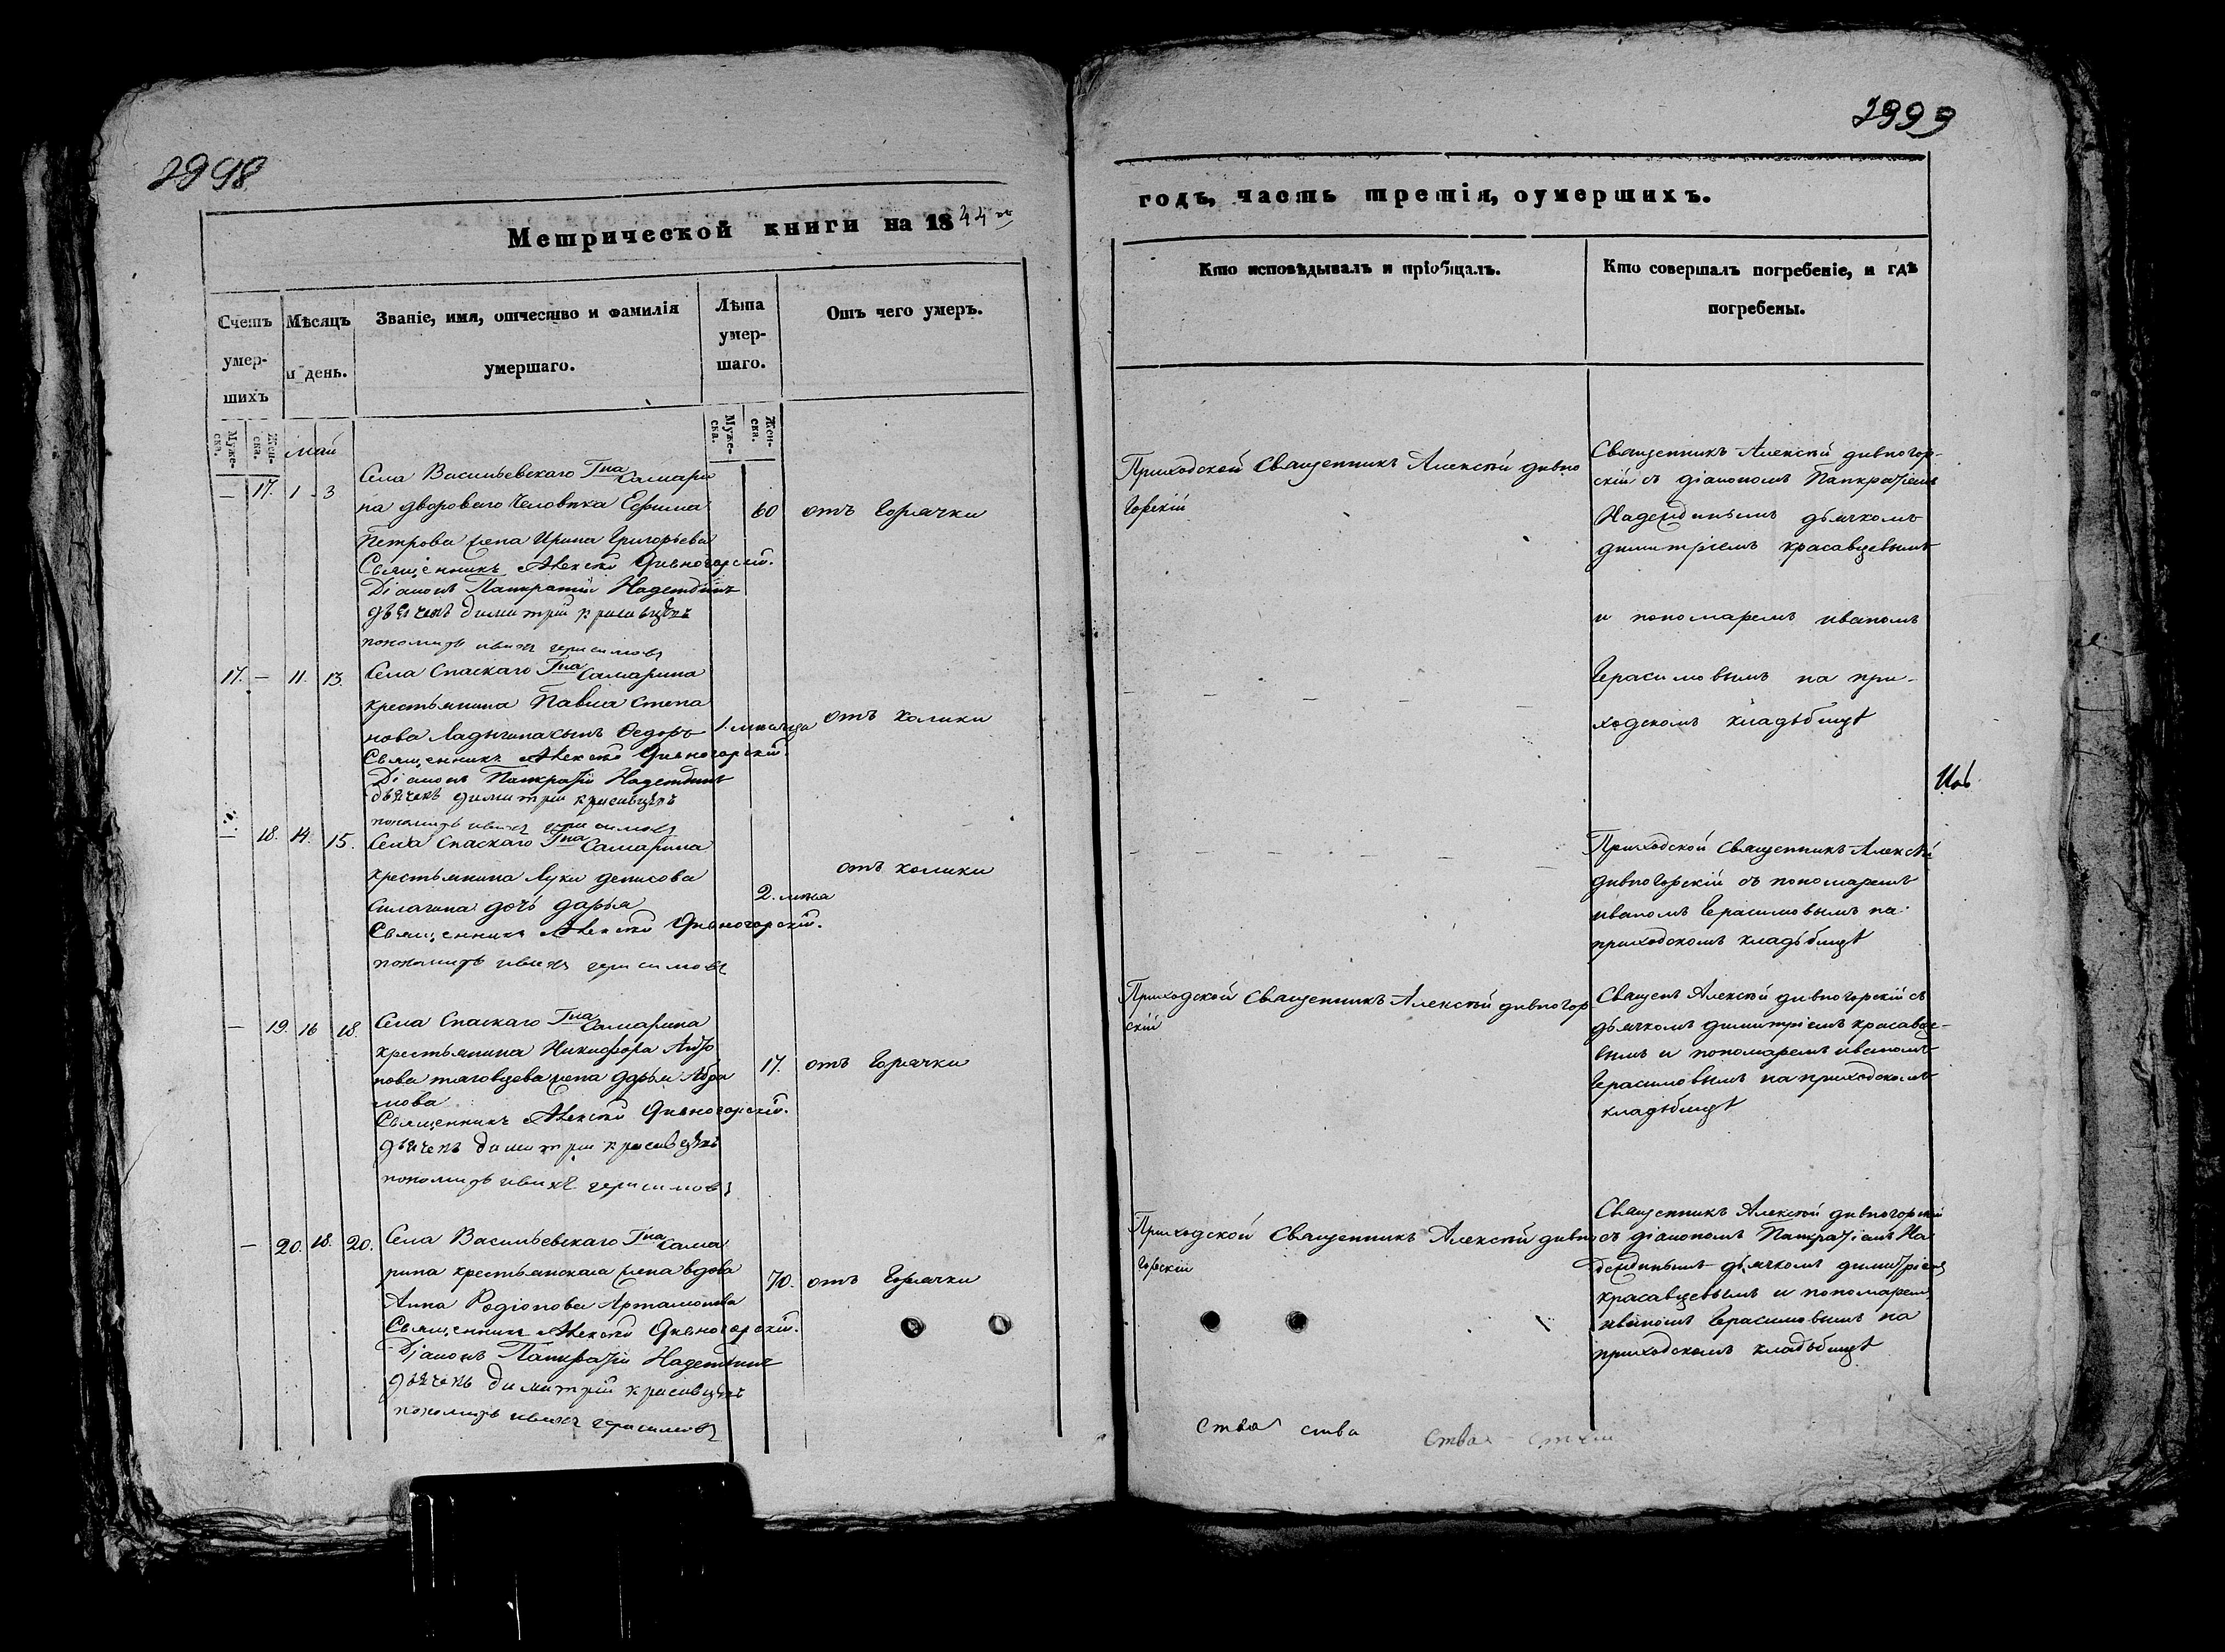 2998
Метрической книги на 1844й
Счетъ умер-шихъ
Мѣсяцъ и день.
Званіе, имя, отчество и фамилія умершаго.
Лѣта умер-шаго.
Отъ чего умеръ.
Муже-ска.
Жен-ска.
Май
Муже-ска.
Жен-ска.
— 17. 1 3
Села Васильевскаго Гна Самари
на двороваго человѣка Ефима
Петрова жена Ирина Григорьева
60 отъ горячки
Священникъ Алексѣй Дивногорскій.
Діаконъ Панкратій Надеждинъ
дьячекъ димитрій красавцевъ
пономарь иванъ герасимовъ
17. — 11. 13.
Села Спаскаго Гна Самарина
крестьянина Павла Степа
нова Ладыгина сынъ Ѳедоръ
1. мѣсяца отъ колики
Священникъ Алексѣй Дивногорскій.
Діаконъ Панкратій Надеждинъ
дьячекъ димитрій красавцевъ
пономарь иванъ герасимовъ
— 18. 14. 15.
Села Спаскаго Гна Самарина
крестьянина Луки денисова
Силагина дочь дарья
2. лѣта отъ колики
Священникъ Алексѣй Дивногорскій.
пономарь иванъ герасимовъ
— 19. 16 18.
Села Спаскаго Гна Самарина
крестьянина Никифора Анто
нова жена дарья Абра
мова
17. отъ горячки
Священникъ Алексѣй Дивногорскій.
дьячекъ димитрій красавцевъ
пономарь иванъ герасимовъ
— 20. 18. 20.
Села Васильевскаго Гна Сама
рина крестьянская жена вдова
Анна Родіонова Артамонова
70. отъ горячки
Священникъ Алексѣй Дивногорскій.
Діаконъ Панкратій Надеждинъ
дьячекъ димитрій красавцевъ
пономарь иванъ герасимовъ
2999
годъ, часть третія, оумершихъ.
Кто исповѣдывалъ и пріобщалъ.
Кто совершалъ погребеніе, и гдѣ
погребены.
Приходской Священникъ Алексѣй дивно
горскій
Священникъ Алексѣй дивногор-
скій съ діакономъ Панкратіемъ
Надеждинымъ дьячкомъ
димитріемъ красавцевымъ
и пономаремъ иваномъ
Герасимовымъ на при-
ходскомъ кладьбищѣ
Приходской Священникъ Алексѣй
дивногорскій съ пономаремъ
иваномъ Герасимовымъ на
приходскомъ кладьбищѣ
Приходской Священникъ Алексѣй дивногор
скій
Священ Алексѣй дивногорскій съ
дьячкомъ димитріемъ красавце-
вымъ и пономаремъ иваномъ
Герасимовымъ на приходскомъ
кладьбищѣ
Приходской Священникъ Алексѣй дивно
горскій
Священникъ Алексѣй дивногорскій
съ діакономъ Панкратіемъ На
деждинымъ дьячкомъ димитріемъ
красавцевымъ и пономаремъ
иваномъ Герасимовымъ на
приходскомъ кладьбищѣ
Ства ства Ства